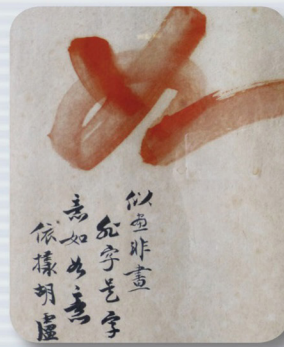 似畫非畫
非字是字
意如如意
依樣胡盧